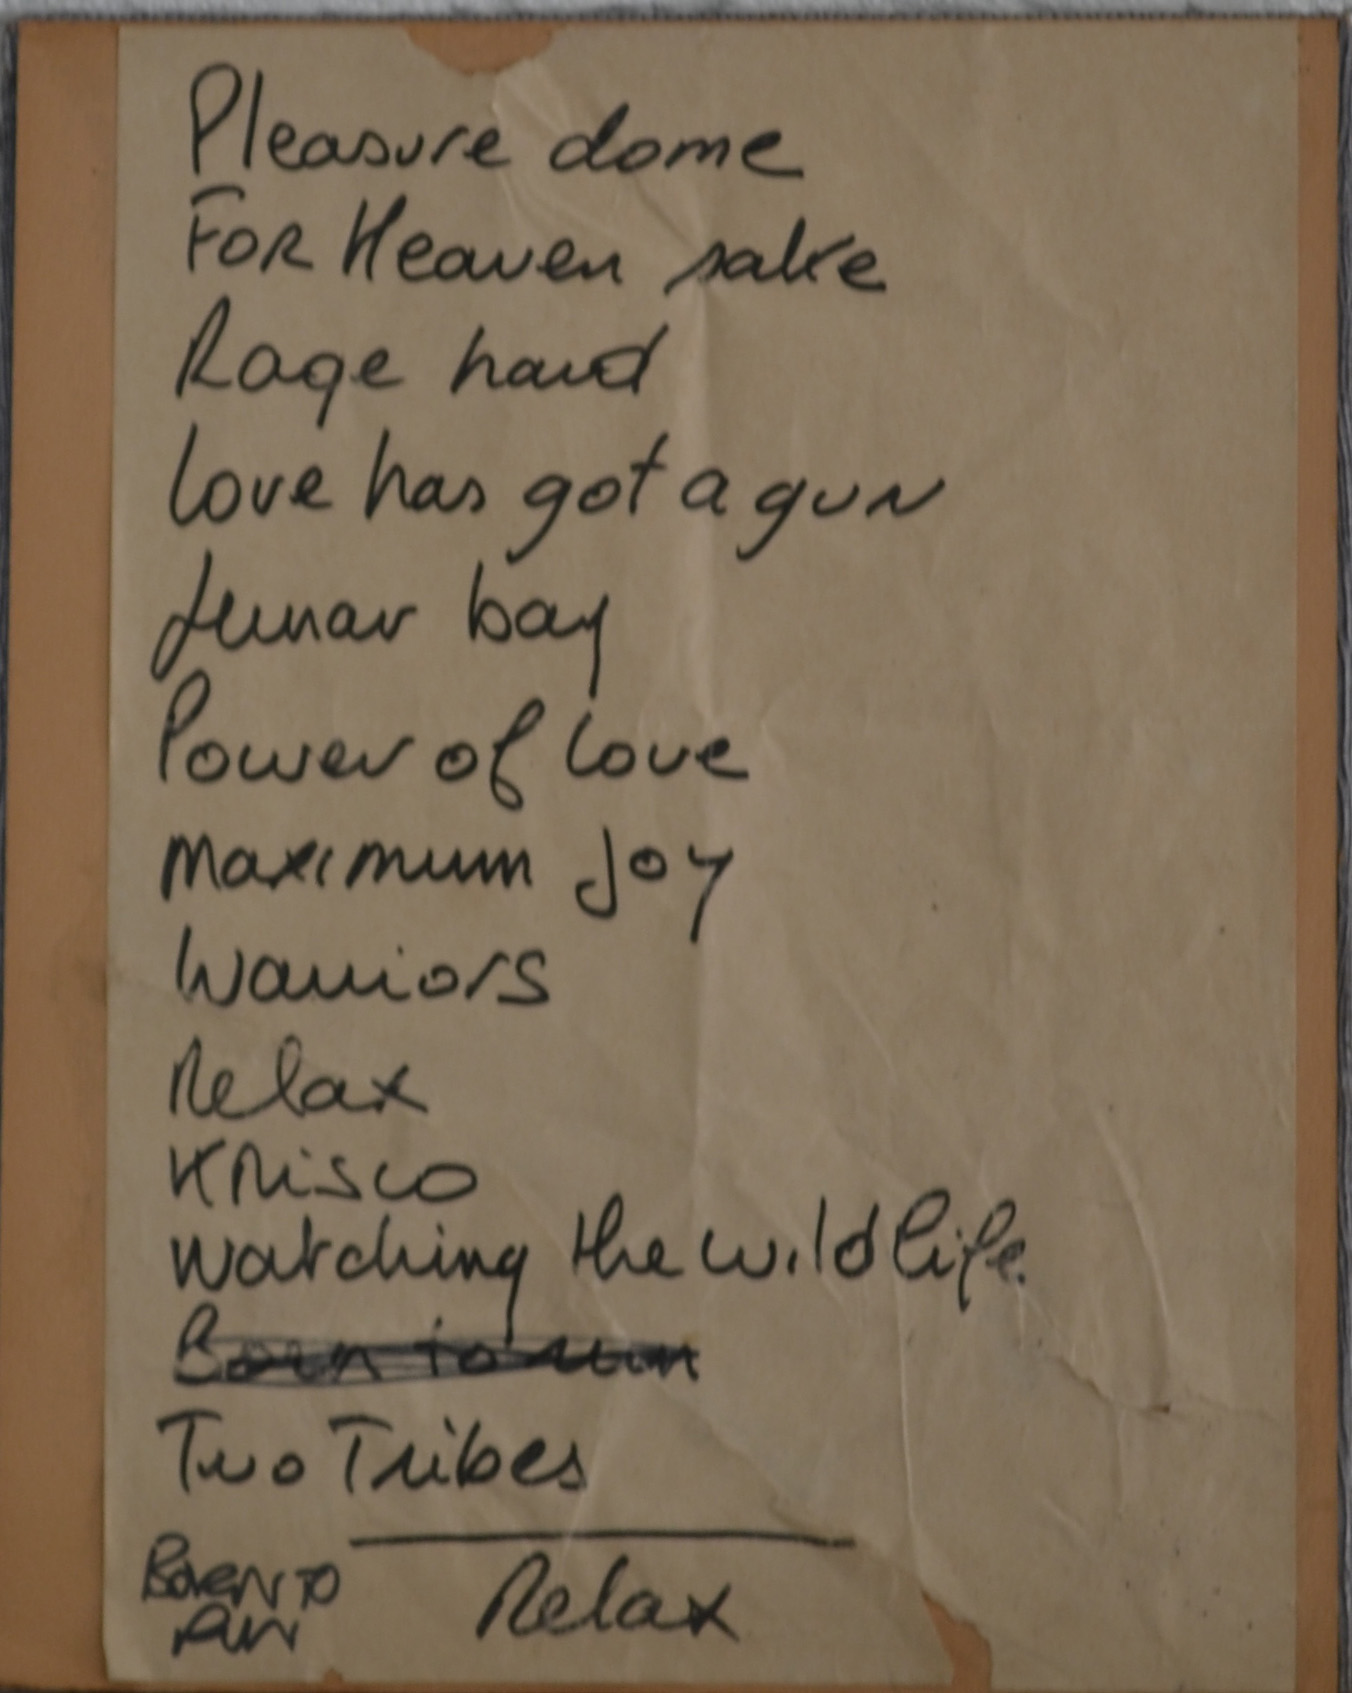 Pleasure dome
FOR Heaven sake
Rage hard
love has got a gun
Lunar bay
Power of love
maximum joy
Warriors
Relax
Krisco
watching the wildlife.
Born to run
Two Tribes
BORN TO
RUN
Relax